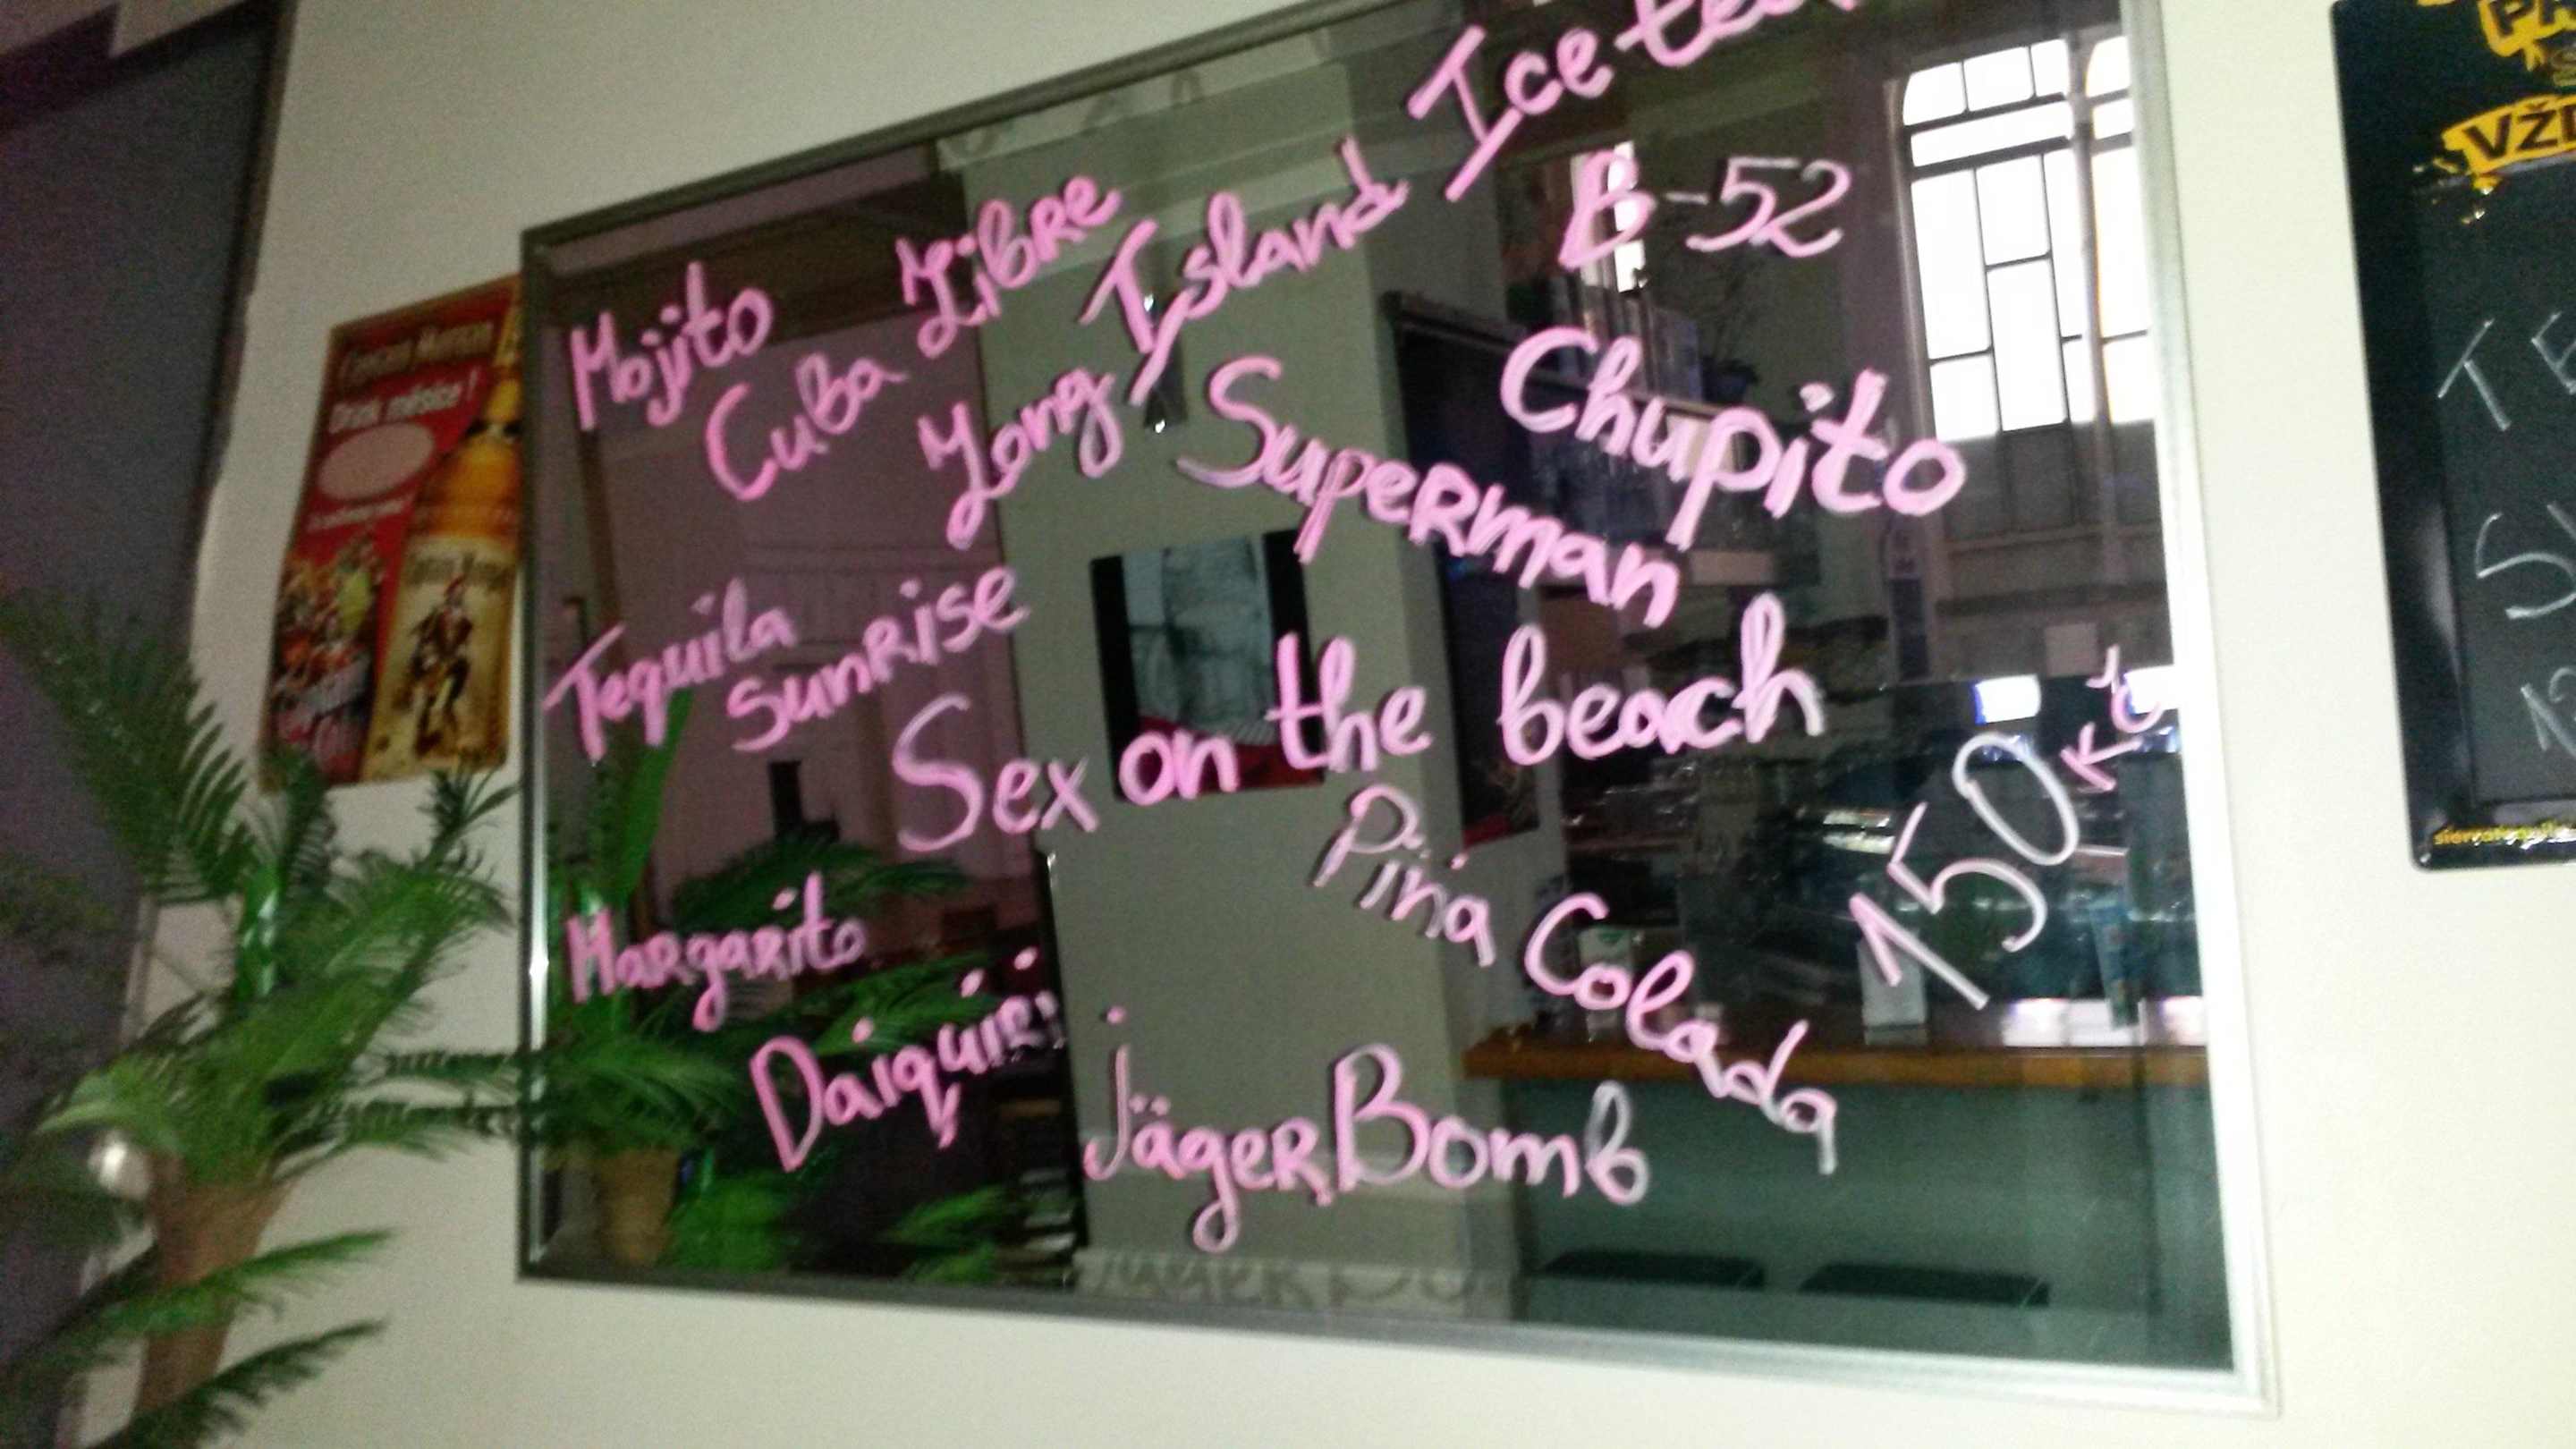 Mojito
Cuba Libre
Long Island Ice tea
B-52
Chupito
Superman
Tequila
sunrise
Sex on the beach
Piña Colada
150 Kč
Margarita
Daiquiri
JägerBomb
Captain Morgan
Drink měsíce!
VŽD
TE